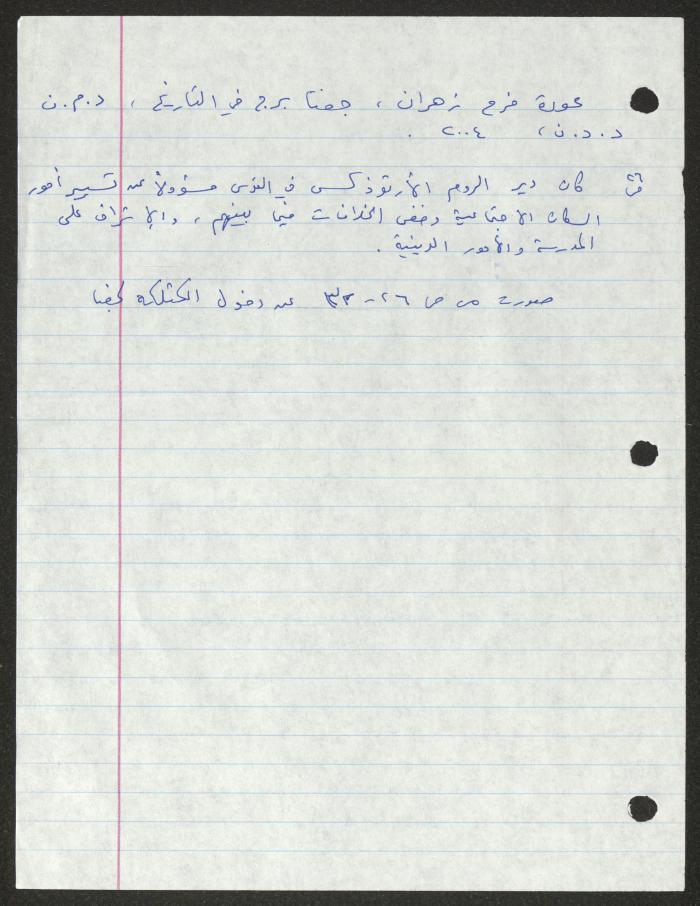 عودة فرح زهران، جفنا برج في التاريخ، د.م.ن
د.د.ن، ٢٠٠٤.
ص٢٦ كان دير الروم الأرثوذكس في القدس مسؤولاً عن تسيير أمور
السكان الاجتماعية وفض الخلافات فيما بينهم، والإشراف على
المدرسة والأمور الدينية.
صورت من ص ٢٦-٣٢ عن دخول الكثلكة لجفنا